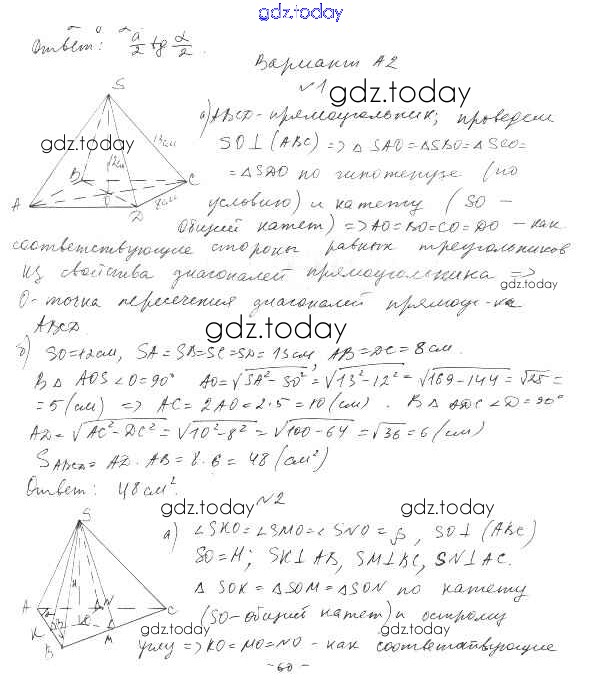 gdz.today
Ответ: a/2 tg α/2.
Вариант А2
№1
gdz.today
а) ABCD - прямоугольник; проведем
gdz.today
SO⊥(ABC) => △SAO=△SBO=△SCO=
=△SDO по гипотенузе (по
условию) и катету (SO -
общий катет) => AO=BO=CO=DO - как
соответствующие стороны равных треугольников
S
13 см
12 см
B
C
A
O
D
8 см
из свойства диагоналей прямоугольника =>
gdz.today
O - точка пересечения диагоналей прямоуг-ка
ABCD.
gdz.today
б) SO=12 см, SA=SB=SC=SD=13 см, AB=DC=8 см.
В △ AOS ∠O=90° AO=√SA²-SO²=√13²-12²=√169-144=√25=
=5(см) => AC=2AO=2·5=10(см). В △ADC ∠D=90°
AD=√AC²-DC²=√10²-8²=√100-64=√36=6(см)
S ABCD = AD·AB=8·6=48(см²)
Ответ: 48 см².
gdz.today
№2
gdz.today
а) ∠SKO=∠SMO=∠SNO=β, SO⊥(ABC)
SO=H; SK⊥AB, SM⊥BC, SN⊥AC.
△SOK=△SOM=△SON по катету
(SO - общий катет) и острому
S
H
A
N
C
K
O
B
M
gdz.today
gdz.today
углу => KO=MO=NO - как соответствующие
- 60 -